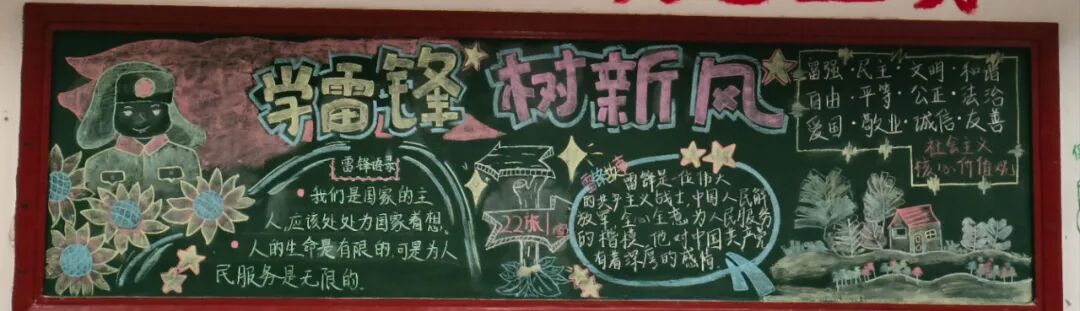 学雷锋 树新风
雷锋语录
我们是国家的主
人,应该处处为国家着想。
人的生命是有限的,可是为人
民服务是无限的.
22旅1
雷锋是一位伟大
的共产主义战士,中国人民解
放军,全心全意为人民服务
的楷模,他对中国共产党
有着深厚的感情.
富强·民主·文明·和谐
自由·平等·公正·法治
爱国·敬业·诚信·友善
社会主义
核心价值观